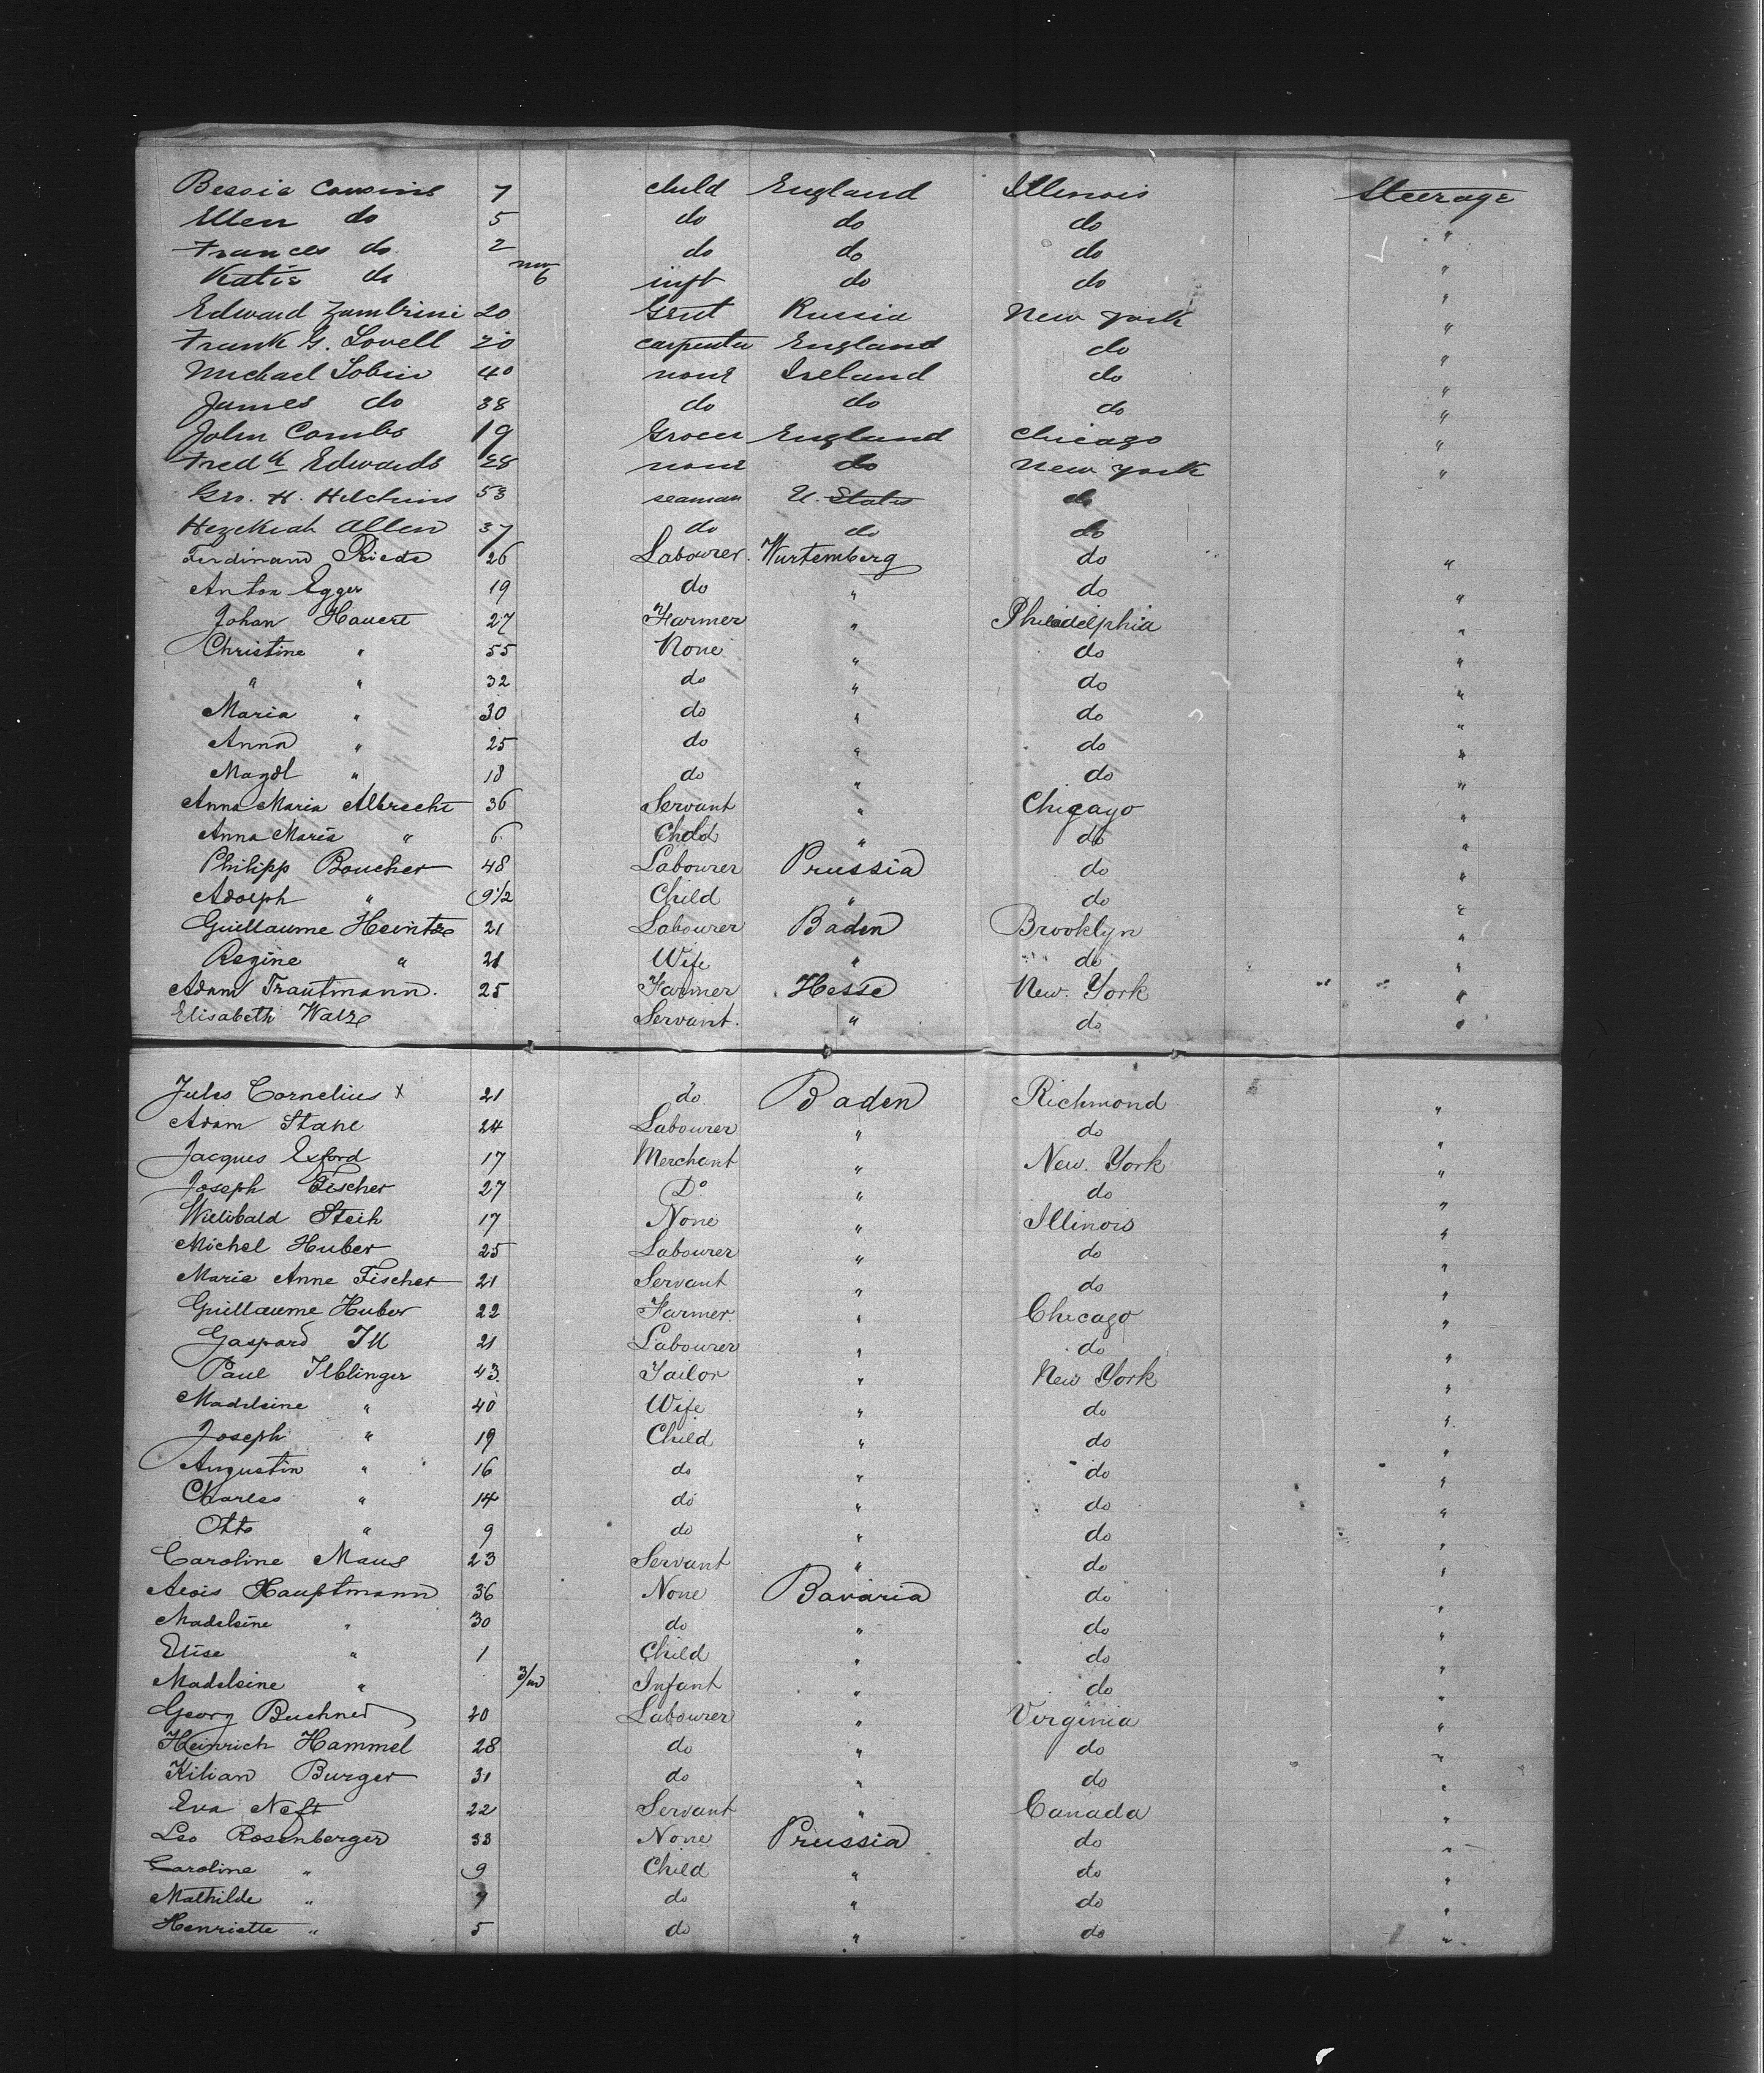 Bessie Cousins 7 child England Illinois Steerage
Ellen do 5 do do do "
Frances do 2 do do do "
Katie do mos 6 inft do do "
Edward Zambrini 20 Gent Russia New York "
Frank G. Lovell 20 carpenter England do "
Michael Tobin 40 none Ireland do "
James do 38 do do do "
John Combs 19 Grocer England Chicago "
Fredk Edwards 28 none do New York "
Geo. H. Hitchins 53 seaman U. States do
Hezekiah Allen 37 do do do
Ferdinand Riede 26 Labourer. Wurtemberg do "
Anton Egger 19 do " do "
Johan Hauert 27 Farmer " Philadelphia "
Christine " 55 None " do "
" " 32 do " do "
Maria " 30 do " do "
Anna " 25 do " do "
Magdl " 18 do " do "
Anna Maria Albrecht 36 Servant " Chicago "
Anna Maria " 6 Child " do "
Philipp Boucher 48 Labourer Prussia do "
Adolph " 9 1/2 Child " do "
Guillaume Heintze 21 Labourer Baden Brooklyn "
Regine " 21 Wife " do "
Adam Trautmann. 25 Farmer Hesse New. York "
Elisabeth Walze Servant. " do "
Jules Cornelius x 21 do Baden Richmond "
Adam Stahl 24 Labourer " do "
Jacques Exford 17 Merchant " New. York "
Joseph Fischer 27 Do " do "
Willibald Steih 17 None " Illinois "
Michel Huber 25 Labourer " do "
Marie Anne Fischer 21 Servant " do "
Guillaume Huber 22 Farmer. " Chicago "
Gaspard Ill 21 Labourer " do "
Paul Ilblinger 43. Tailor " New York "
Madeleine " 40 Wife " do "
Joseph " 19 Child " do "
Augustin " 16 do " do "
Charles " 14 do " do "
Otto " 9 do " do "
Caroline Maus 23 Servant " do "
Alois Hauptmann 36 None Bavaria do "
Madeleine " 30 do " do "
Elise " 1 Child " do "
Madeleine " 3/m Infant " do "
Georg Buchner 20 Labourer " Virginia "
Heinrich Hammel 28 do " do "
Kilian Burger 31 do " do "
Eva Neft 22 Servant " Canada "
Leo Rosenberger 33 None Prussia do "
Caroline " 9 Child " do "
Mathilde " 7 do " do "
Henriette " 5 do " do "